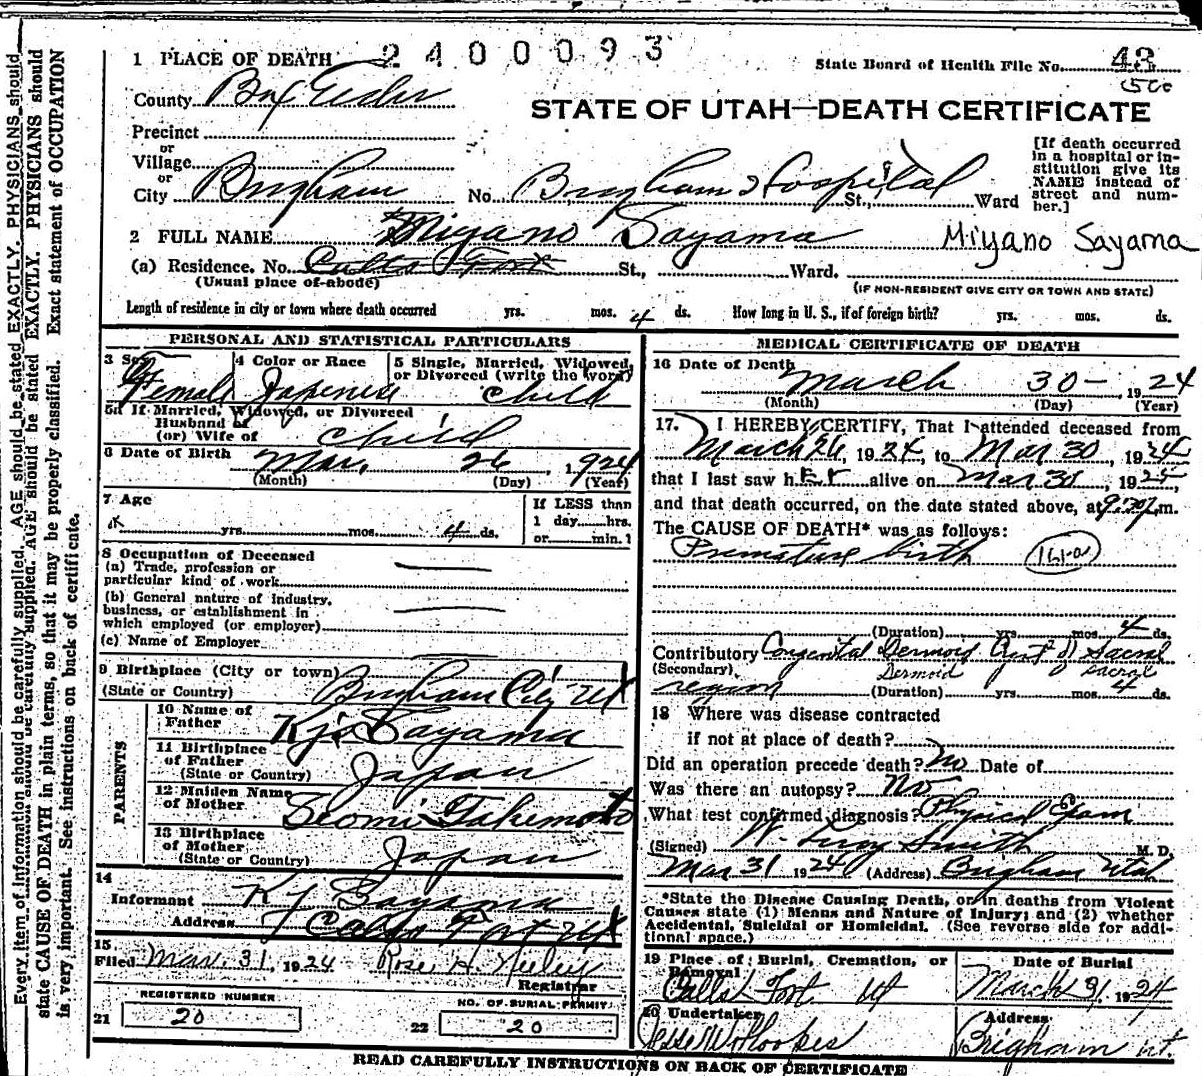 1 PLACE OF DEATH 2400093 State Board of Health File No. 43
500
County Box Elder STATE OF UTAH—DEATH CERTIFICATE
Precinct
or
Village
or
City Brigham No. Brigham Hospital St., Ward
[If death occurred
in a hospital or in-
stitution give its
NAME instead of
street and num-
ber.]
2 FULL NAME Miyano Sayama Miyano Sayama
(a) Residence. No. Calls Fort St., Ward.
(Usual place of abode) (IF NON-RESIDENT GIVE CITY OR TOWN AND STATE)
Length of residence in city or town where death occurred yrs. mos. 4 ds. How long in U. S., if of foreign birth? yrs. mos. ds.
PERSONAL AND STATISTICAL PARTICULARS
3 Sex 4 Color or Race 5 Single, Married, Widowed,
or Divorced (write the word)
Female Japenese Child
5a If Married, Widowed, or Divorced
Husband of
(or) Wife of Child
6 Date of Birth Mar. 26, 1924
(Month) (Day) (Year)
7 Age If LESS than
1 day hrs.
yrs. mos. 4 ds. or min. 1
8 Occupation of Deceased
(a) Trade, profession or
particular kind of work
(b) General nature of industry,
business, or establishment in
which employed (or employer)
(c) Name of Employer
9 Birthplace (City or town) Brigham City Ut
(State or Country)
PARENTS
10 Name of
Father Kjo Sayama
11 Birthplace
of Father Japan
(State or Country)
12 Maiden Name
of Mother Seomi Takemoto
13 Birthplace
of Mother Japan
(State or Country)
14
Informant KJ Sayama
Address Calls Fort Ut
15
Filed Mar. 31, 1924 Rose H. Neeley
Registrar
REGISTERED NUMBER NO. OF BURIAL PERMIT
21 20 22 20
MEDICAL CERTIFICATE OF DEATH
16 Date of Death March 30-, 1924
(Month) (Day) (Year)
17. I HEREBY CERTIFY, That I attended deceased from
March 26, 1924, to Mar 30, 1924
that I last saw her alive on Mar 30, 192
and that death occurred, on the date stated above, at m.
The CAUSE OF DEATH* was as follows:
Premature birth 161-a
(Duration) yrs. mos. 4 ds.
Contributory Congenital Dermoid Cyst of Sacral
(Secondary) Dermoid Sacral
region (Duration) yrs. mos. 4 ds.
18 Where was disease contracted
if not at place of death?
Did an operation precede death? No Date of
Was there an autopsy? No
What test confirmed diagnosis? Physical Exam
(Signed) W. Leroy Smith M. D.
Mar 31 1924 (Address) Brigham Utah
*State the Disease Causing Death, or in deaths from Violent
Causes state (1) Means and Nature of Injury; and (2) whether
Accidental, Suicidal or Homicidal. (See reverse side for addi-
tional space.)
19 Place of Burial, Cremation, or
Removal Date of Burial
Calls Fort Ut March 31, 1924
20 Undertaker Address
Jesse W. Hoopes Brigham Ut.
READ CAREFULLY INSTRUCTIONS ON BACK OF CERTIFICATE
Every item of information should be carefully supplied. AGE should be stated EXACTLY. PHYSICIANS should
state CAUSE OF DEATH in plain terms, so that it may be properly classified. Exact statement of OCCUPATION
is very important. See instructions on back of certificate.